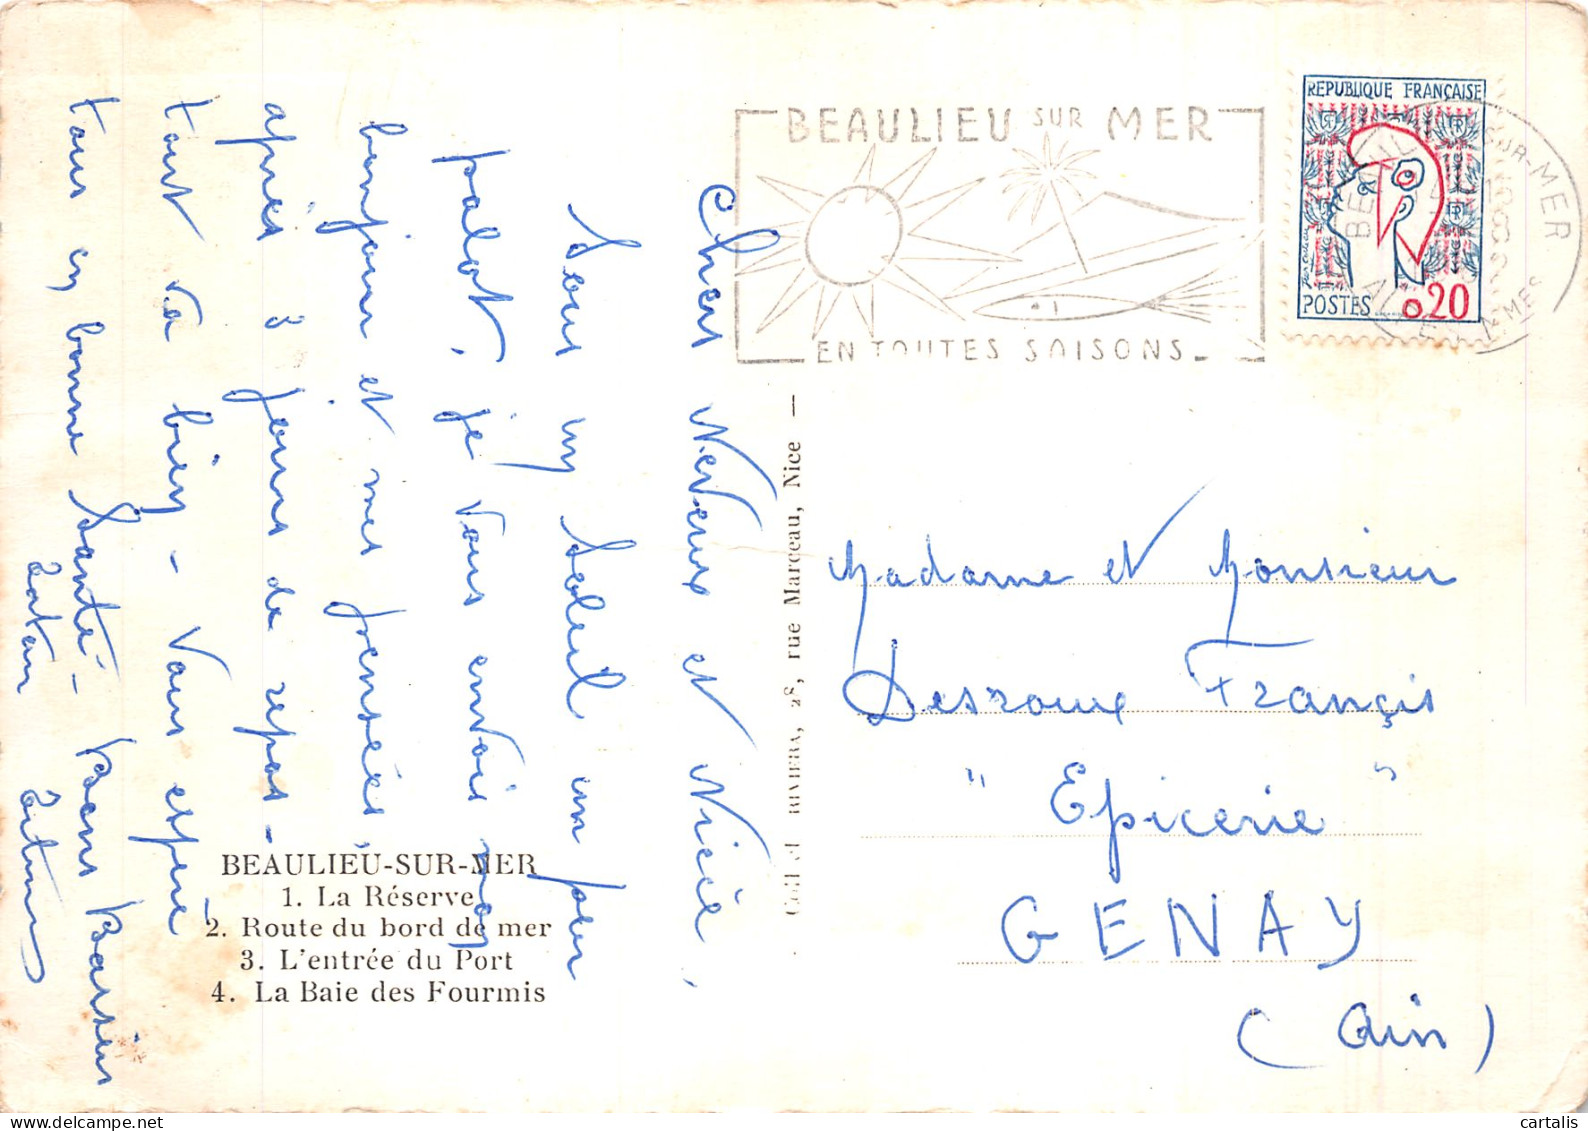 BEAULIEU SUR MER
EN TOUTES SAISONS
REPUBLIQUE FRANÇAISE
POSTES 0.20
SUR-MER
Chers Neveux et Nièce,
Sous un Soleil un peu
palot, je vous envois mon
bonjour et mes pensées,
après 3 jours de repos -
tout va bien - Vous espère
tous en bonne Santé - Bons Baisers
BEAULIEU-SUR-MER
1. La Réserve
2. Route du bord de mer
3. L'entrée du Port
4. La Baie des Fourmis
RIVIERA, 28, rue Marceau, Nice —
Madame et Monsieur
Desroux Françis
" Epicerie "
GENAY
(Ain)
cartalis
www.delcampe.net